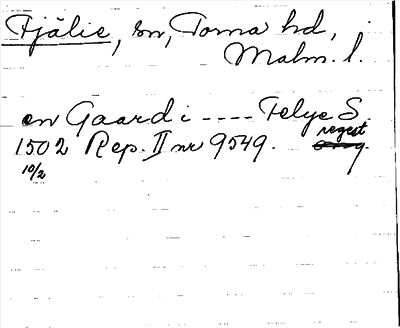 Fjälie, sn, Torna hd,
Malm. l.
en Gaard i ---- Felye S.
1502 Rep. II nr 9549. regest
10/2